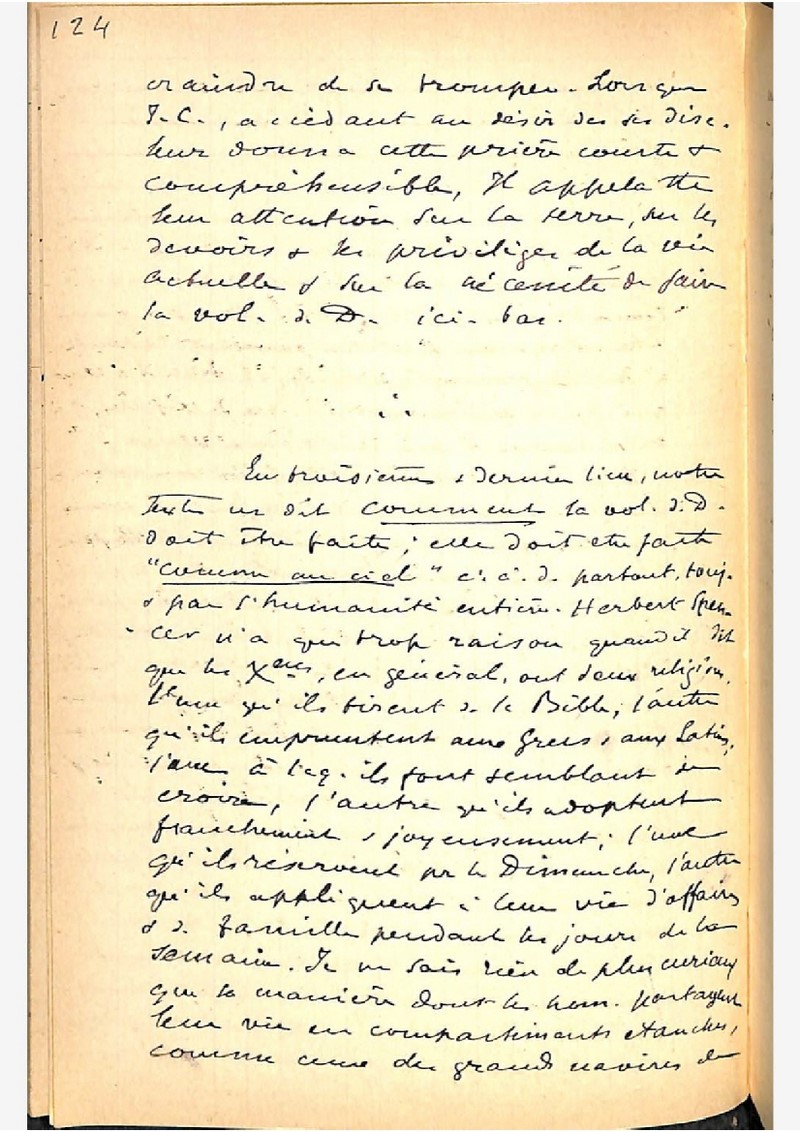 124
craindre de se tromper. Lorsque
J.-C., accédant au désir de ses disc.
leur donna cette prière courte &
compréhensible, Il appela tte
leur attention sur la terre, sur les
devoirs & les privilèges de la vie
actuelle & sur la nécessité de faire
la vol. d. D. ici-bas.
En troisième & dernier lieu, notre
texte ns dit comment la vol. d. D.
doit être faite ; elle doit etre faite
"comme au ciel" c. à. d. partout, touj.
& par l'humanité entière. Herbert Spen-
cer n'a que trop raison quand il dit
que les Xens, en général, ont deux religions,
l'une qu'ils tirent de la Bible, l'autre
qu'ils empruntent aux Grecs & aux Latins,
l'une à laq. ils font semblant de
croire, l'autre qu'ils adoptent
franchement & joyeusement ; l'une
qu'ils réservent pr le Dimanche, l'autre
qu'ils appliquent à leur vie d'affaires
& d. famille pendant les jours de la
semaine. Je ne sais rien de plus curieux
que la manière dont les hom. partagent
leur vie en compartiments étanches,
comme ceux des grands navires de